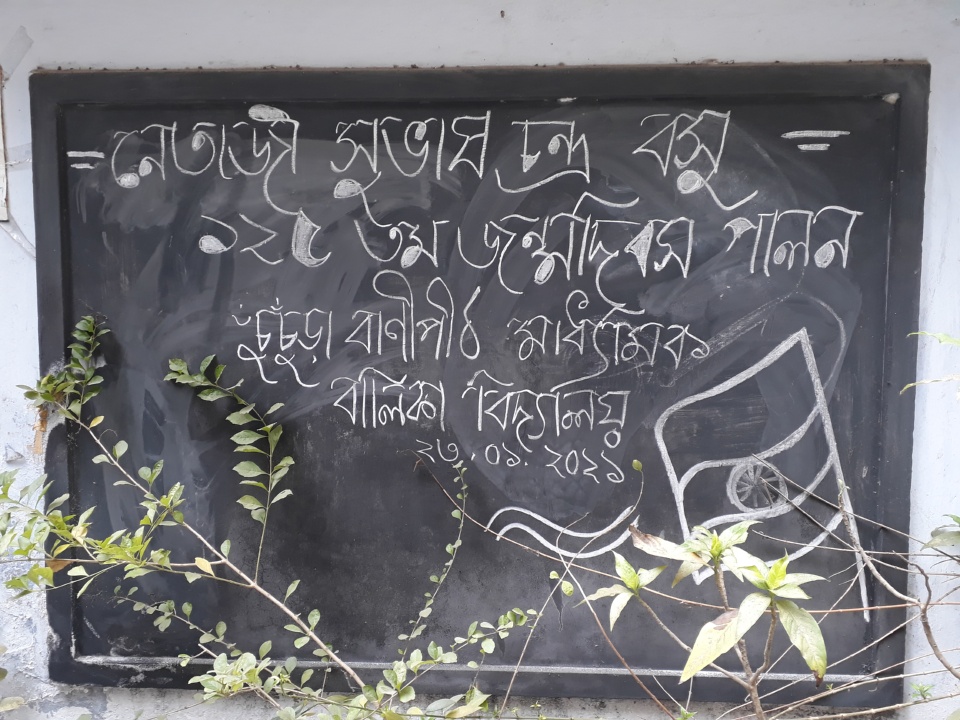 = নেতাজী সুভাষ চন্দ্র বসু =
১২৫ তম জন্মদিবস পালন
চুঁচুঁড়া বাণীপীঠ মাধ্যমিক
বালিকা বিদ্যালয়
২৩.০১.২০২১